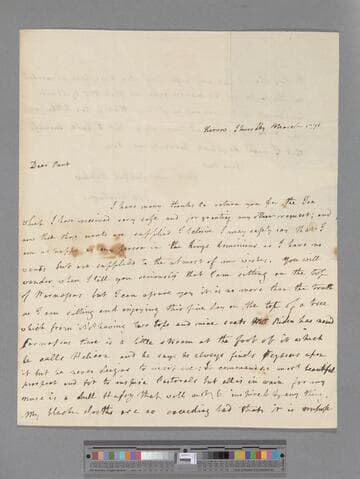 Harrow Thursday March
Dear Aunt
I have many thanks to return you for the Tea
which I have received very safe and for granting my other request; and
now that those wants are supplied I believe I may safely say that I
am as happy as any person in the Kings dominions as I have no
wants but are supplied to the utmost of my wishes. You will
wonder when I tell you seriously that I am sitting on the top
of Parnassus but I can assure you it is no more than the truth
as I am sitting and enjoying this fine day on the top of a tree
which from its having two tops and nine seats has named
Parnassus there is a little stream at the foot of it which
he calls Helicon and he says he always finds Pegasus upon
it but he never deigns to it commands a most beautiful
prospect and fit to inspire Pastorals but all is in vain for my
muse is a dull that will not be inspired by any thing.
My black cloths are so exceeding bad that it is